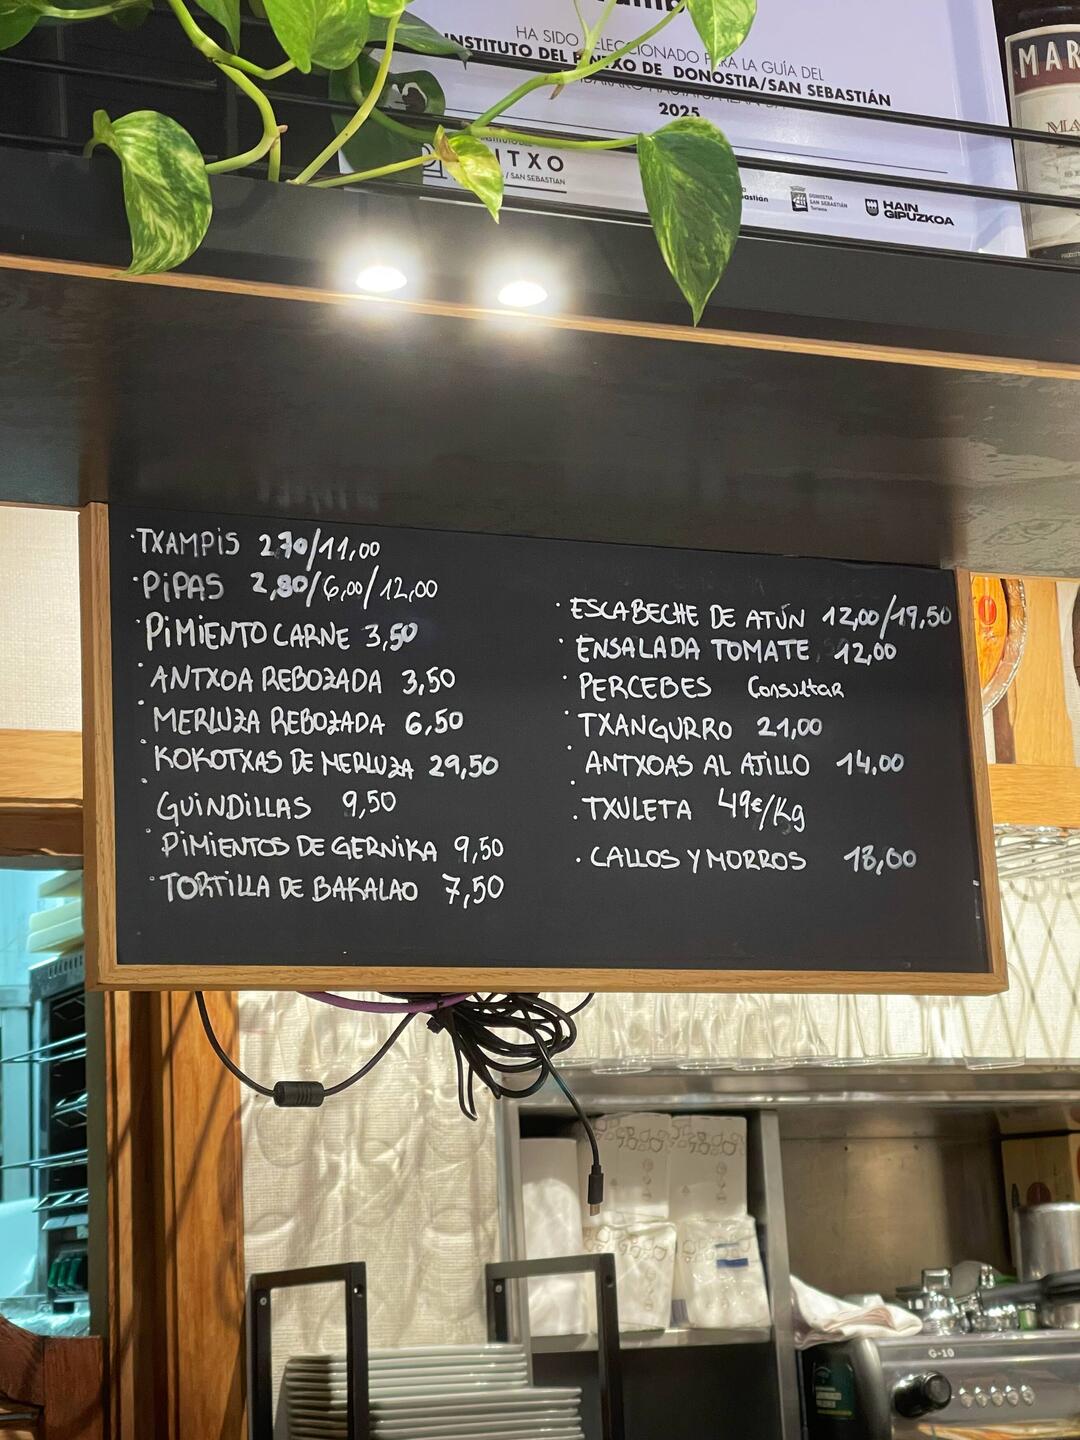 HA SIDO SELECCIONADO PARA LA GUÍA DEL
INSTITUTO DEL PINTXO DE DONOSTIA/SAN SEBASTIÁN
2025
/ SAN SEBASTIAN
DONOSTIA
SAN SEBASTIÁN
HAIN
GIPUZKOA
MAR
· TXAMPIS 2,70/11,00
· PIPAS 2,80/6,00/12,00
· PIMIENTO CARNE 3,50
· ANTXOA REBOZADA 3,50
· MERLUZA REBOZADA 6,50
· KOKOTXAS DE MERLUZA 29,50
· GUINDILLAS 9,50
· PIMIENTOS DE GERNIKA 9,50
· TORTILLA DE BAKALAO 7,50
· ESCABECHE DE ATÚN 12,00/19,50
· ENSALADA TOMATE 12,00
· PERCEBES Consultar
· TXANGURRO 21,00
· ANTXOAS AL AJILLO 14,00
· TXULETA 49€/Kg
· CALLOS Y MORROS 18,00
G-10